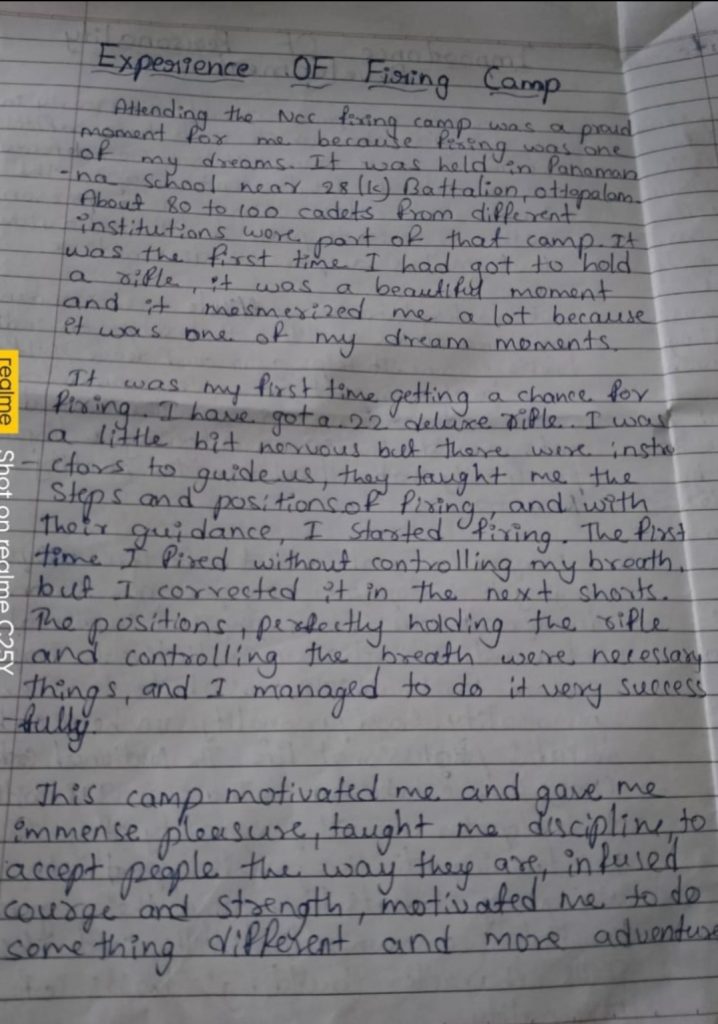 Experience OF Firing Camp
Attending the Ncc firing camp was a proud
moment for me because firing was one
of my dreams. It was held in Panaman
-na school near 28 (K) Battalion, ottapalam.
About 80 to 100 cadets from different
institutions were part of that camp. It
was the first time I had got to hold
a rifle, it was a beautiful moment
and it mesmerized me a lot because
it was one of my dream moments.
It was my first time getting a chance for
firing. I have got a .22 deluxe rifle. I was
a little bit nervous but there were instru
-ctors to guide us, they taught me the
steps and positions of firing, and with
their guidance, I started firing. The first
time I fired without controlling my breath.
but I corrected it in the next shorts.
The positions, perfectly holding the rifle
and controlling the breath were necessary
things, and I managed to do it very success
-fully.
This camp motivated me and gave me
immense pleasure, taught me discipline, to
accept people the way they are, infused
courge and strength, motivated me to do
something different and more adventure
realme Shot on realme C25Y